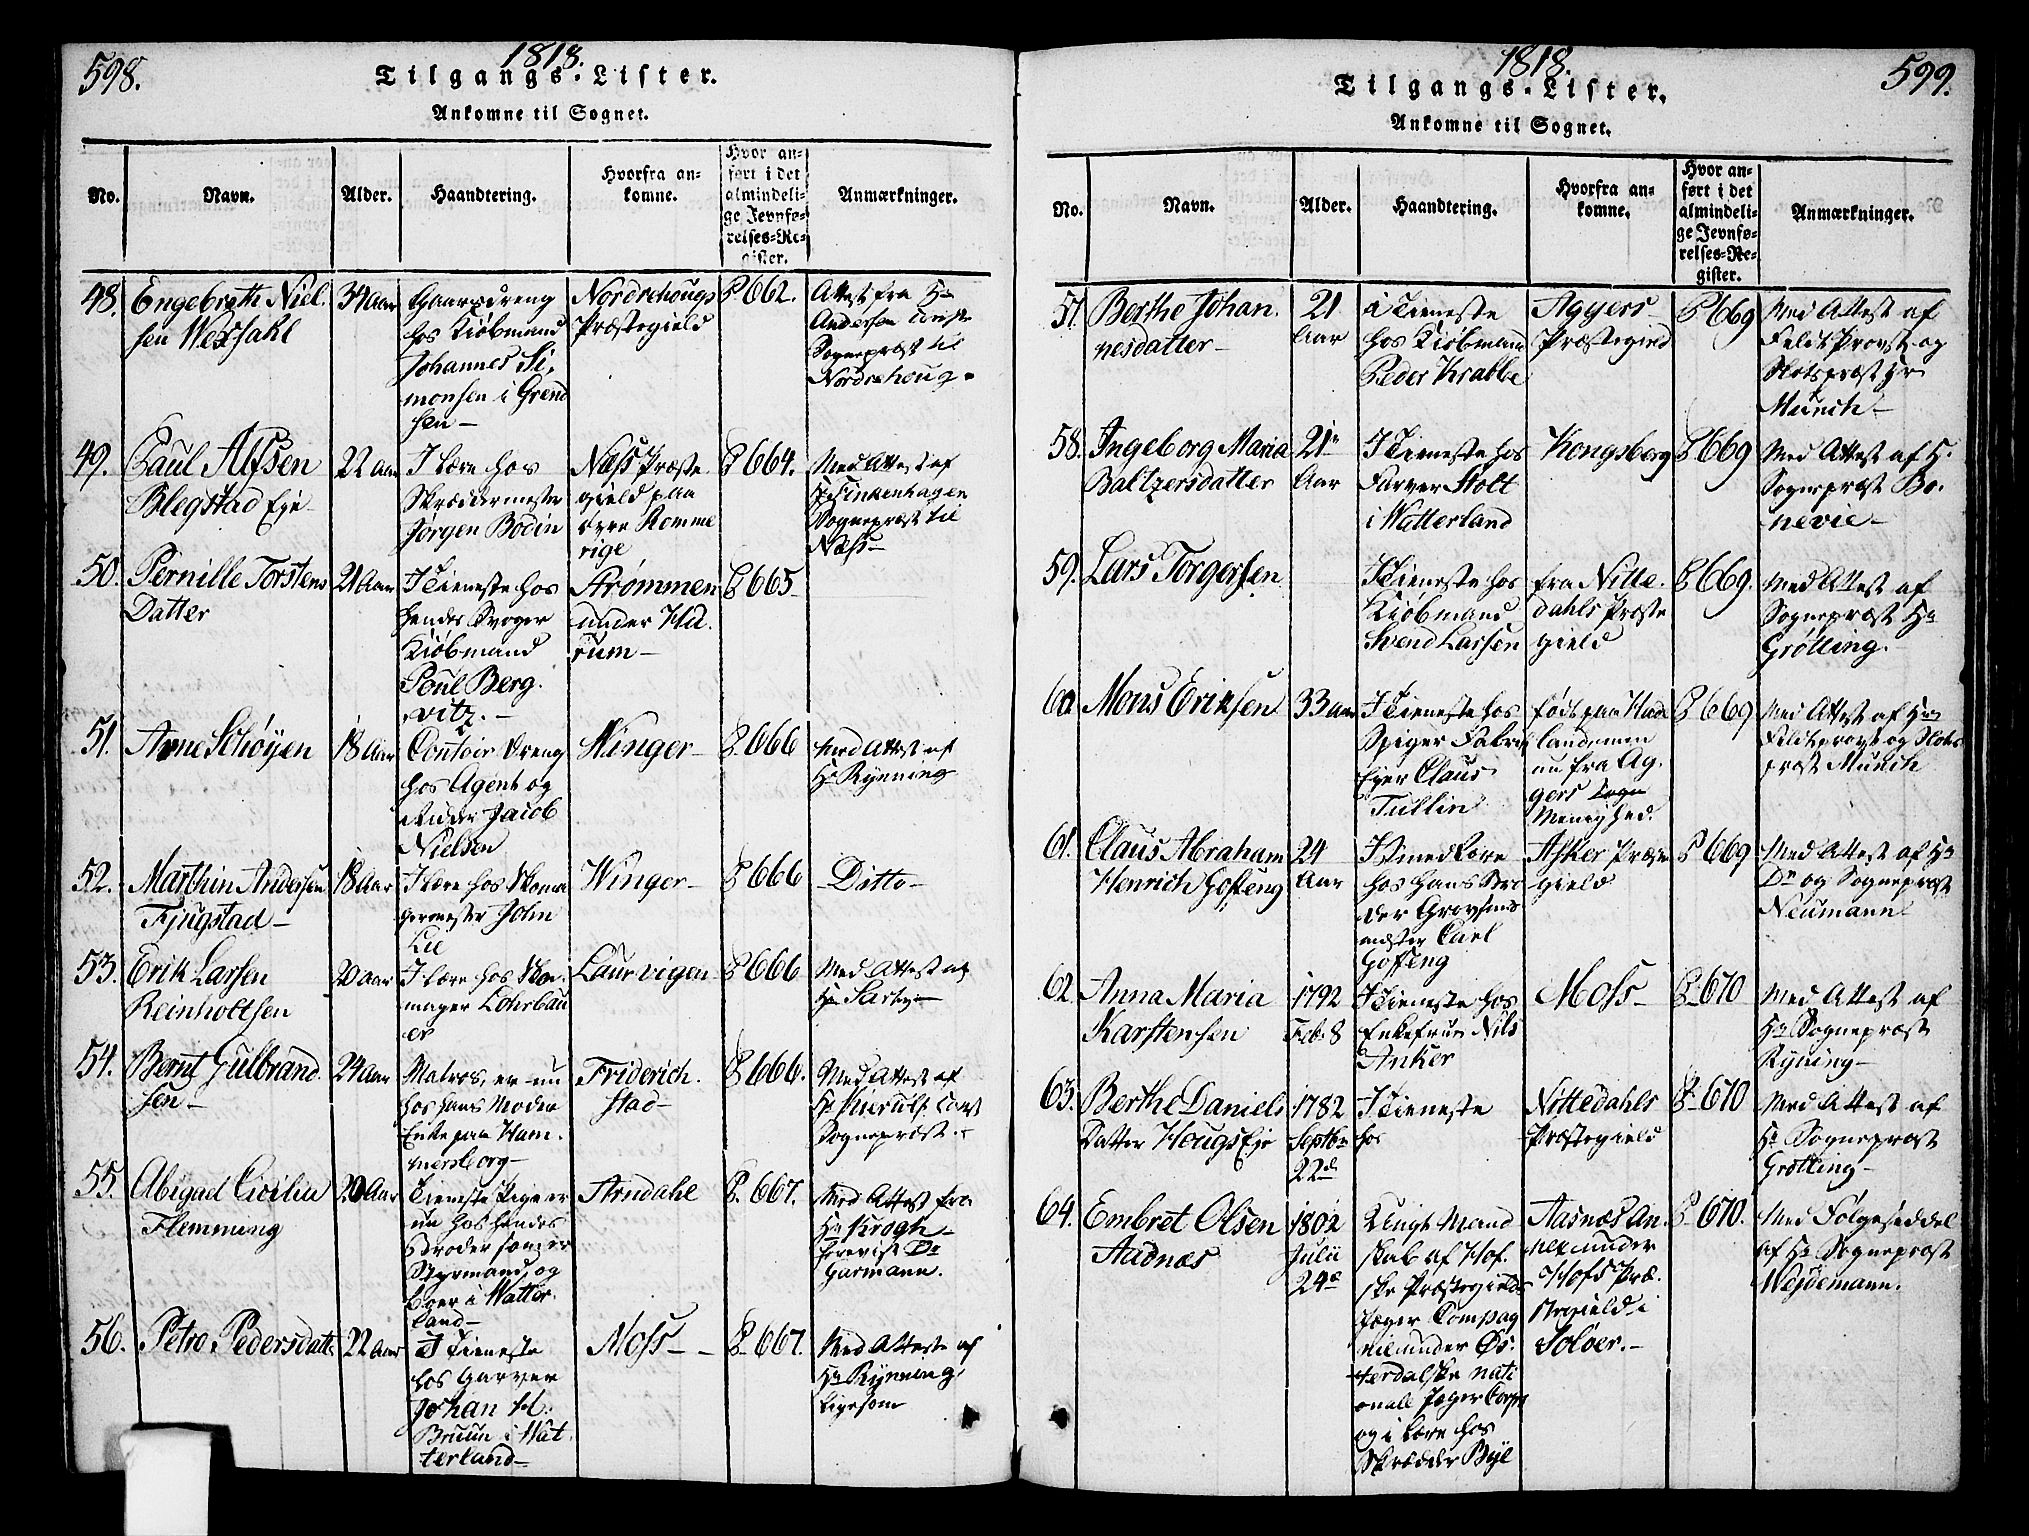 598.
1818.
Tilgangs-Lister.
Ankomne til Sognet.
No.
Navn.
Alder.
Haandtering.
Hvorfra an-
komne.
Hvor an-
ført i det
almindeli-
ge Jevnfø-
relses-Re-
gister.
Anmærkninger.
48.
Engebreth Niel-
sen Wexsahl
34 aar
Gaardreng
hos Kiøbmand
Johannes Si,
monsen i Grend
sen—
Nordrehougs
Præstegield
P 662.
Attest fra Hr
Andersen Const
Sognepræst til
Nordrehoug.
49.
Paul Alfsen
Blegstad Eje
22 aar
I Lære hos
Skrædermester
Jørgen Bodin
Næss Præste
gield paa
øvre Romme
rige
P 664.
Med Attest af
Hr Finkenhagen
Sognepræst til
Næss—
50.
Pernille Torstens
Datter
21 Aar
I Tieneste hos
hendes Svoger
Kiøbmand
Poul Berg.
vitz.—
Strømmen
under Hu.
rum—
P 665
51.
Arne Schøyen
18 Aar
Contoir Dreng
hos Agent og
Ridder Jacob
Nielsen
Winger—
P. 666
Med Attest af
Hr Rynning
52.
Marthin Andersen
Fjugstad—
18 Aar
I Lære hos Skoma
germester John
Lie
Winger—
P 666
—Ditto—
53.
Erik Larsen
Reinholtsen
20 aar
I Lære hos Sko.
mager Lohrbau
er
Laurvigen
P 666
Med Attest af
Hr Sartz—
54.
Bernt Gulbrand.
sen—
24 aar
Matros, er nu
hos hans Moder
Enke paa Ham.
mersborg—
Friderich.
stad—
P 666.
Med Attest af
Hr Const
Sognepræst.
55.
Abigael Cicilia
Flemming
20 Aar
Tieneste Pige er
nu hos hendes
Broder som er
Styrmand, og
boer i Watter.
land—
Arndahl
P. 667.
Med Attest fra
Hr Krogh—
forevist Dr
Garmann.
56.
Petro. Pedersdatt.
22 aar
I Tieneste
hos Garver
Johan H.
Bruun i Wat.
terland—
Moss—
P 667.
Med Attest af
Hr Rynning,
Ligesom
1818.
599.
Tilgangs-Lister.
Ankomne til Sognet.
No.
Navn.
Alder.
Haandtering.
Hvorfra an-
komne.
Hvor an-
ført i det
almindeli-
ge Jevnfø-
relses-Re-
gister.
Anmærkninger.
57.
Berthe Johan.
nesdatter—
21
Aar
i Tieneste
hos Kiøbmand
Peder Krabbe
Aggers—
Præstegield
P 669
Med Attest af
Feldt Provst og
Slotspræst Hr
Munch—
58.
Ingeborg Maria
Baltzersdatter
21
Aar
I Tieneste hos
Farver Holt
i Watterland
Kongsberg
P 669
Med Attest af H.
Sognepræst Bo.
nevie—
59.
Lars Torgersen
I Tieneste hos
Kiøbmand
Svend Larsen
fra Nitte.
dahls Præste
gield
P 669.
Med Attest af
Sognepræst Hr
Grøtting.
60
Mons Eriksen
33 aar
I Tieneste hos
Spiger Fabrik
Ejer Claus
Tullin
født paa Hade
landemen
nu fra Ag.
gers Sogn
Menighed.
P 669
Med Attest af Hr
Feldtprovst og Slots
præst Munch
61.
Claus Abraham
Henrich Goffeng
24
Aar
I Smedlære
hos hans Bro
der Grovsmed
mester Carl
Goffeng
Asker Præste
gield
P 669
Med Attest af Hr
Dr og Sognepræst
Neumann
62
Anna Maria
Karstensen
1792
Feb. 8
I Tieneste hos
Enkefrue Nils
Anker
Moss—
P. 670
Med Attest af
Hr Sognepræst
Ryning—
63.
Berthe Daniels
Datter Hougs Eje
1782
Septbr
22d
I Tieneste
hos
Nittedahls
Præstegield
P. 670
Med Attest af
Hr Sognepræst
Grøtting—
64.
Embret Olsen
Aadnæs
1802
Julii
24de
Lingt Mand
skab af Hof.
ske Præstegields
Jæger Compag
nie under Øs.
terdalske nati
onall Jæger Corps
og i Lære hos
Skrædder Bye
Aasnæs An.
nex under
Hofs Præ.
stegield i
Soløer.—
P. 670.
Med Følgeseddel
af Hr Sognepræst
Wejdemann.